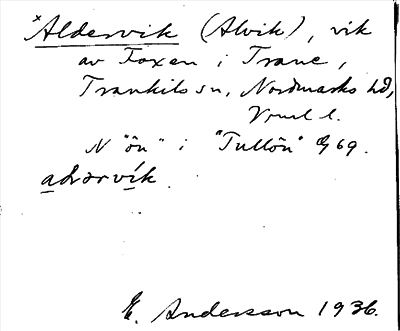 *Aldervik (Alvik), vik
av Foxen i Trane,
Trankils sn, Nordmarks hd,
Vrml l.
N "ön" i "Tullön" 69.
advarvík
E. Andersson 1936.